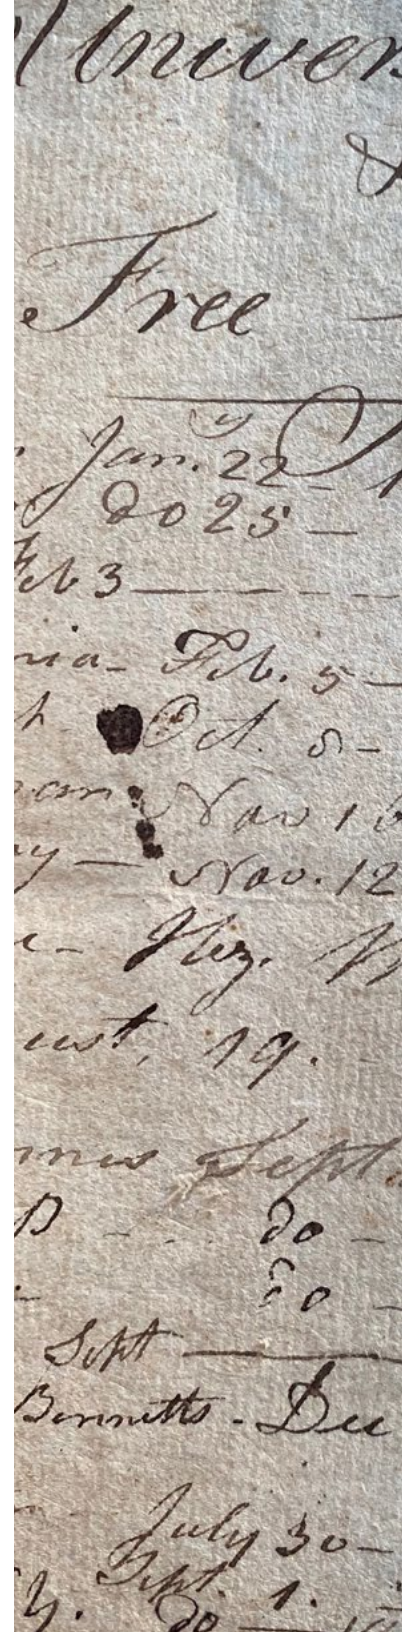 Univer
Free
Jan. 22
do 25 —
Feb 3 —
nia - Feb. 5 —
Oct. 8 -
Nov 16
ny — Nov. 12
Hez.
ust, 19.
Sept.
do -
do -
Sept —
Bennetts - Dec
July 30 -
Sept. 1.
do —